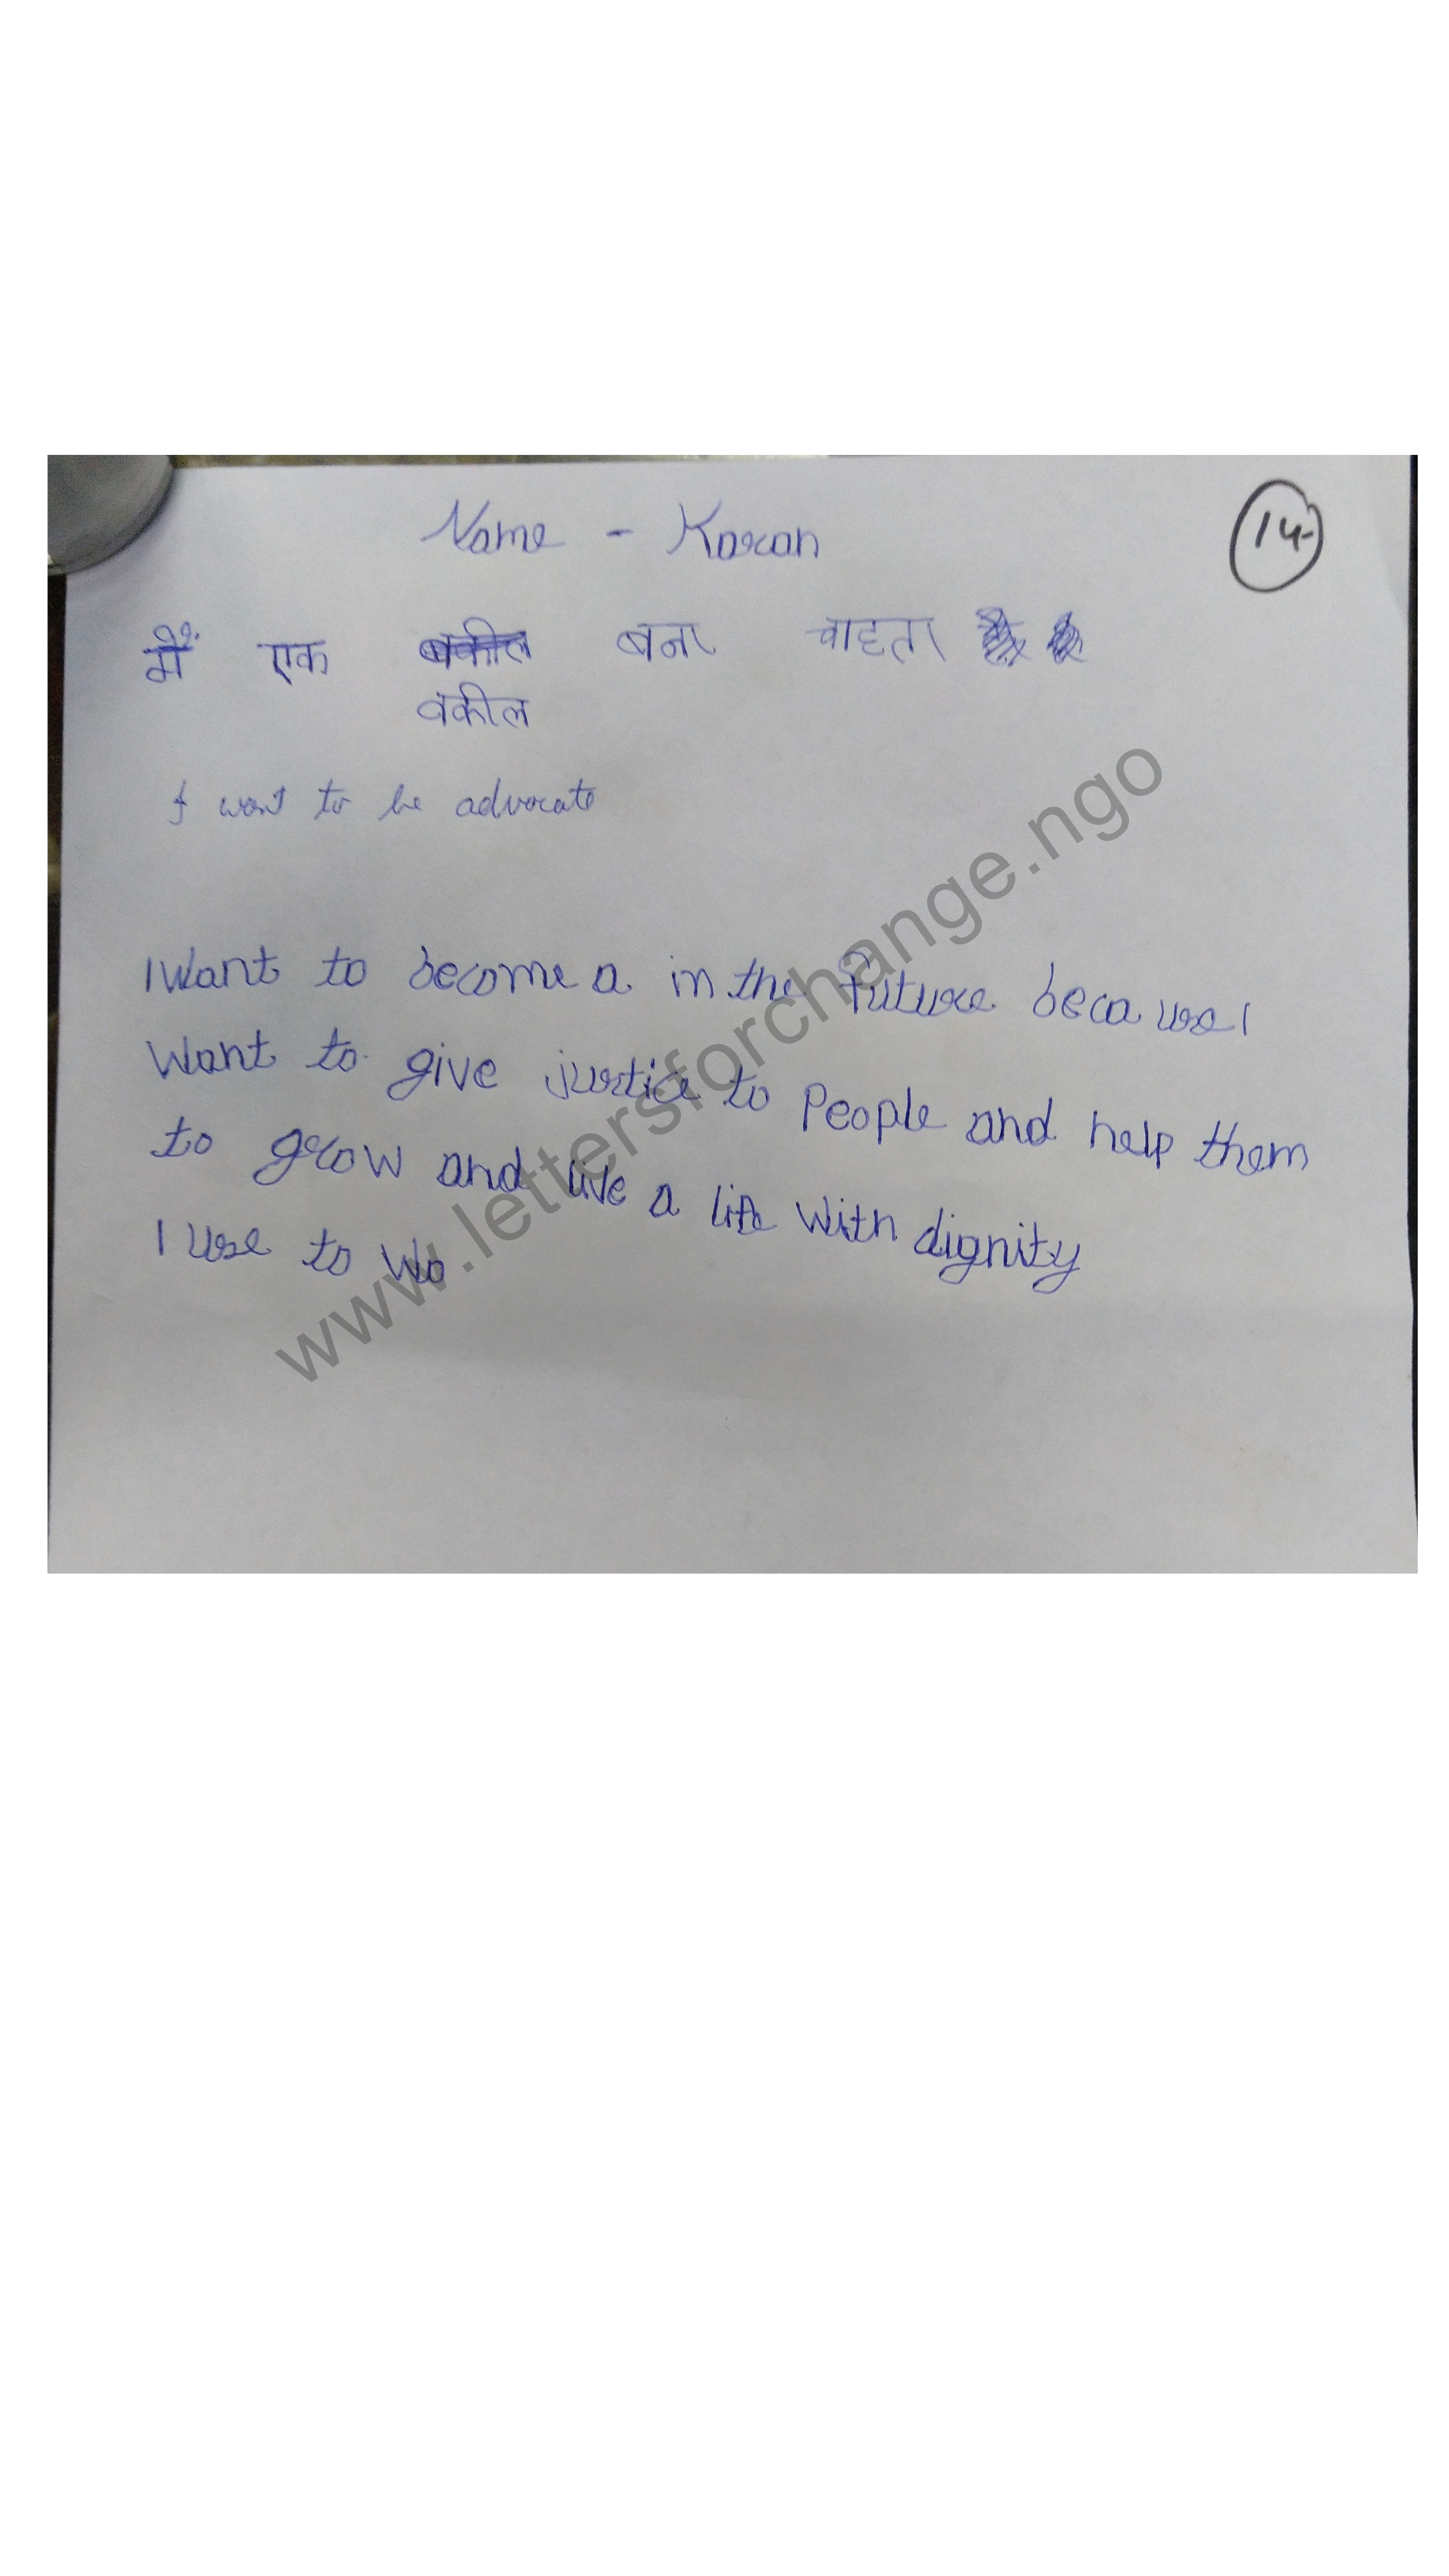 Name - Karan
14
मैं एक बना चाहता
वकील
I want to be advocate
I want to become a in the future because I
want to give justice to People and help them
to grow and live a life with dignity
I use to wo
www.lettersforchange.ngo